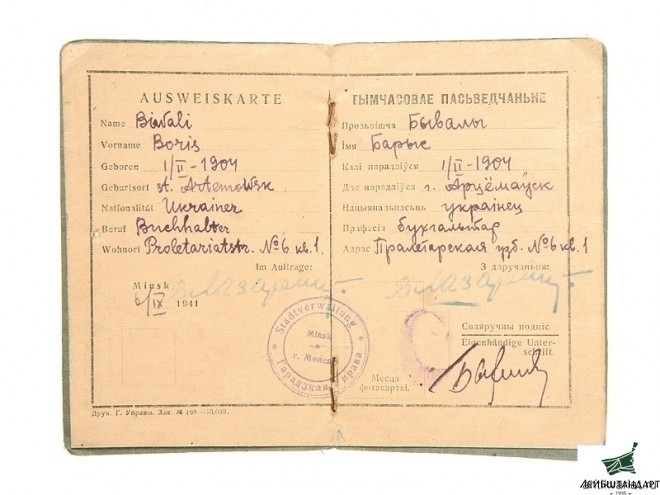 AUSWEISKARTE
Name Biwali
Vorname Boris
Geboren 1/II - 1904
Geburtsort st. Artemowsk
Nationalität Ukrainer
Beruf Buchhalter
Wohnort Proletariatstr. № 6 кв. 1
Im Auftrage:
Minsk
6/IX 1941
Stadtverwaltung
Minsk
г. Менск
Гарадзкая Управа
Друк. Г. Управы. Зак. № 198—10.000.
ТЫМЧАСОВАЕ ПАСЬВЕДЧАНЬНЕ
Прозьвішча Бывалы
Імя Барыс
Калі нарадзіўся 1/II - 1904
Дзе нарадзіўся г. Арцёмаўск
Нацыянальнасьць украінец
Прафэсія бухгальтар
Адрас Пралетарская № 6 кв. 1
З даручэньня:
Сваяручны подпіс
Eigenhändige Unter-
schrift.
Месца
фотакарткі.